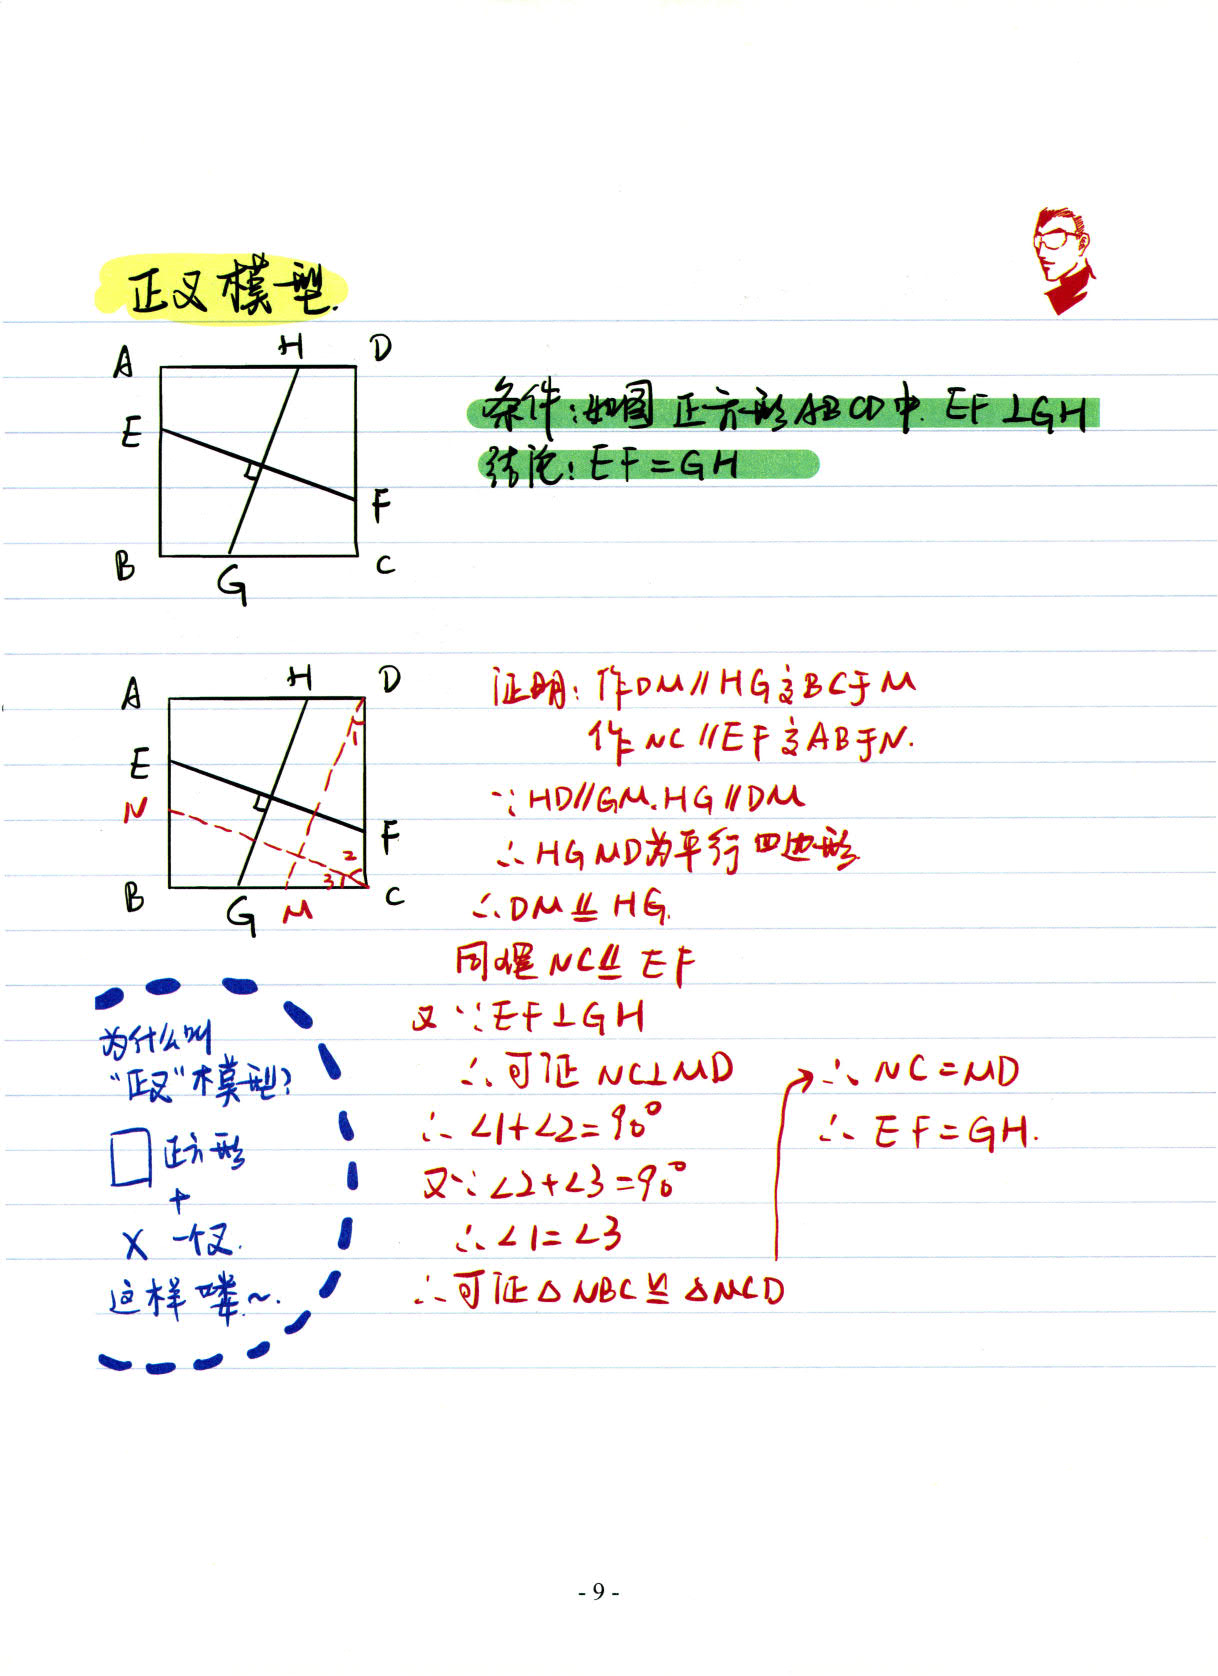 正叉模型.
A H D
E
F
B G C
条件:如图 正方形ABCD中. EF⊥GH
结论: EF=GH
A H D
1
E
N
F
2
3
B G M C
证明: 作DM∥HG交BC于M
作NC∥EF交AB于N.
∵HD∥GM.HG∥DM
∴HGMD为平行四边形
∴DM⫫HG.
同理NC⫫EF
又∵EF⊥GH
∴可证NC⊥MD
∴∠1+∠2=90°
又∵∠2+∠3=90°
∴∠1=∠3
∴可证△NBC≌△MCD
∴NC=MD
∴EF=GH.
为什么叫
“正叉”模型?
□ 正方形
+
X 一个叉.
这样喽~.
- 9 -